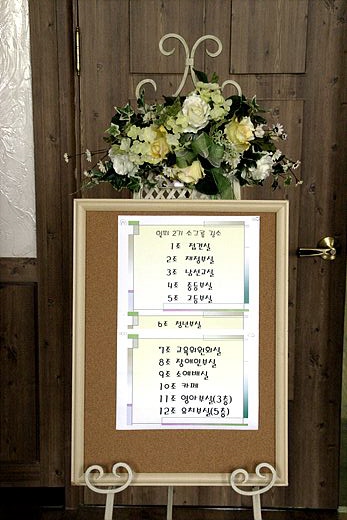 2기 소그룹 장소
1조 접견실
2조 재정부실
3조 남선교실
4조 중등부실
5조 고등부실
6조 청년부실
7조 교육위원회실
8조 장애인부실
9조 소예배실
10조 카페
11조 영아부실(3층)
12조 유치부실(5층)